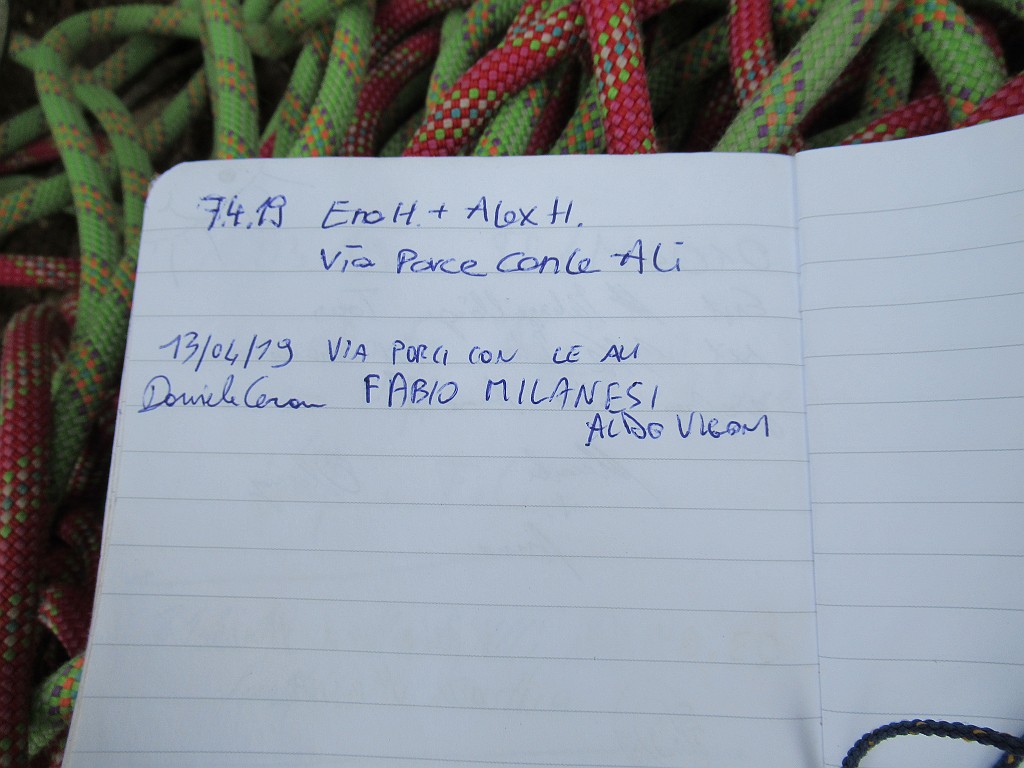 7.4.19 Ena H. + Alex H.
Via Porce con le Ali
13/04/19 VIA PORCI CON LE ALI
Daniele FABIO MILANESI
ALDO